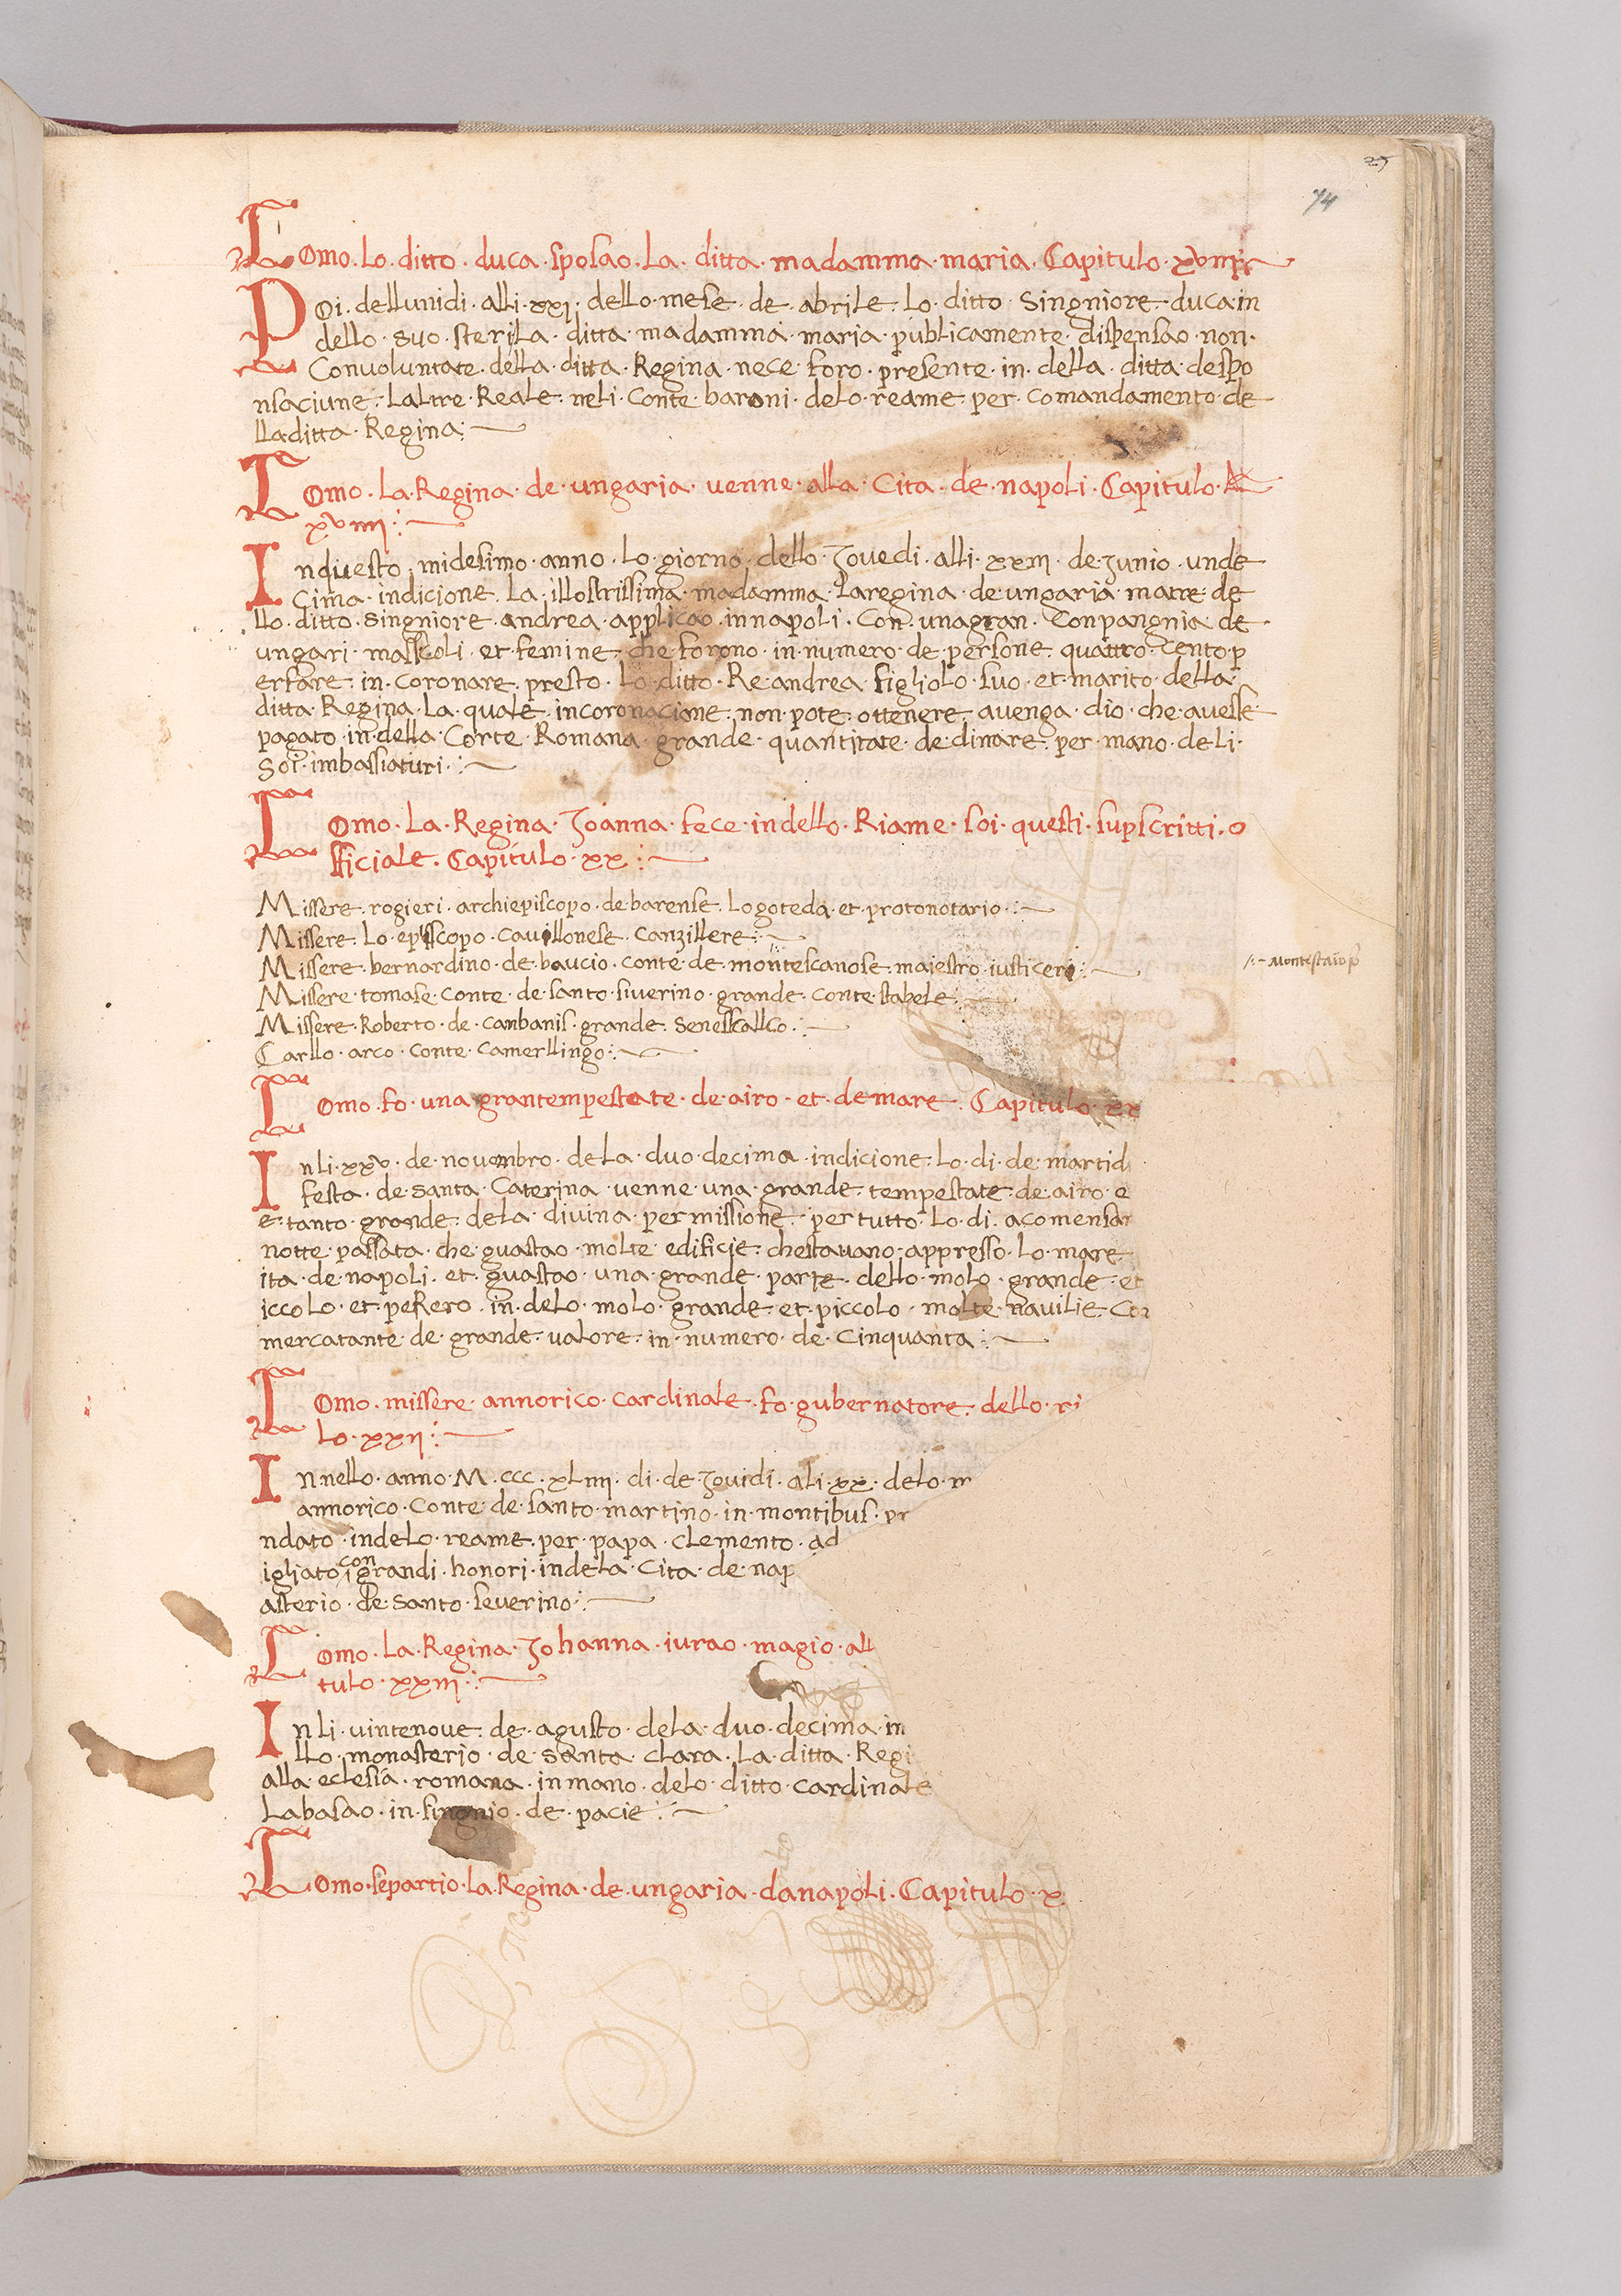 25
74
Como. Lo. ditto. duca. sposao. La. ditta. madamma. maria. Capitulo. xviiii
Poi. dellunidi. alli. xxi. dello. mese. de. abrile. Lo. ditto. Singniore. duca in
dello. suo. steri La. ditta. madamma. maria. publicamente. dispensao. non.
Convoluntate. della. ditta. Regina. nece. foro. presente. in. della. ditta. despo
nsaciune. Laltre. Reale. neli. Conte. baroni. delo. reame. per. comandamento. de
lla ditta. Regina:
Como. La. Regina. de. ungaria. venne. alla. Cita. de. napoli. Capitulo.
xviiii:
In questo. midesimo. anno. Lo. giorno. dello. Jovedi. alli. xxiii. de. Junio. unde
Cima. indicione. La. illostrissima. madamma. La regina. de. ungaria. matre. de
llo. ditto. singniore. andrea. applicao. in napoli. Con. una gran. Conpangnia. de.
ungari. masscoli. et. femine. che forono. in. numero. de. persone. quattro. cento. p
er fare. in. coronare. presto. Lo. ditto. Re. andrea. figliolo. suo. et. marito. della.
ditta. Regina. La. quale. incoronacione. non. pote. ottenere. avenga. dio. che. avesse.
pagato. in. della. Corte. Romana. grande. quantitate. de. dinare. per. mano. de li.
Soi. imbassiaturi.:
Como. La. Regina. Joanna. fece. in dello. Riame. soi. questi. supscritti. o
fficiale. Capitulo. xx:
Missere. rogieri. archiepiscopo. de barense. Logoteda. et. protonotario.:
Missere. Lo. episcopo. cavillonese. canzillere:
Missere. bernardino. de. baucio. conte. de. montescanose. maiestro. iusticeri:
/:- Montescaioso
Missere. tomase. conte. de. santo. siverino. grande. conte stabele:
Missere. Roberto. de. canbanis. grande. senescalco.:
Carllo. arco. conte. camerllingo:
Como. fo. una gran tempestate. de. airo. et. de mare. Capitulo. xx
In li. xxv. de. novembro. dela. duo. decima. indicione. Lo. di. de. martid
festa. de. santa. Caterina. venne. una. grande. tempestate. de. airo. e
e. tanto. grande. dela. divina. permissione. per tutto. Lo. di. acomensan
notte. passata. che. guastao. molte. edificie. che stavano. appresso. Lo. mare
ita. de. napoli. et. guastao. una. grande. parte. dello. molo. grande. et
iccolo. et. perero. in. delo. molo. grande. et. piccolo. molte. navilie. Con
mercatante. de. grande. valore. in. numero. de. Cinquanta:
Como. missere. annorico. cardinale. fo. gubernatore. dello. ri
Lo. xxii:
In nello. anno. M. ccc. xLiiii. di. de. Jovidi. ali. xx. delo. m
annorico. Conte. de. santo. martino. in. montibus. pr
ndato. in delo. reame. per. papa. clemento. ad
igliato. con grandi. honori. in dela. Cita. de. nap
asterio. de. santo. severino:
Como. La. Regina. Johanna. iurao. magio. all
tulo. xxiii:
In li. vintenove. de. agusto. dela. duo. decima. in
llo. monasterio. de. santa. clara. La. ditta. Regi
alla. eclesia. romana. in mano. delo. ditto. cardinale
La basao. in. singnio. de. pacie:
Como. se partio. La. Regina. de. ungaria. da napoli. Capitulo. x